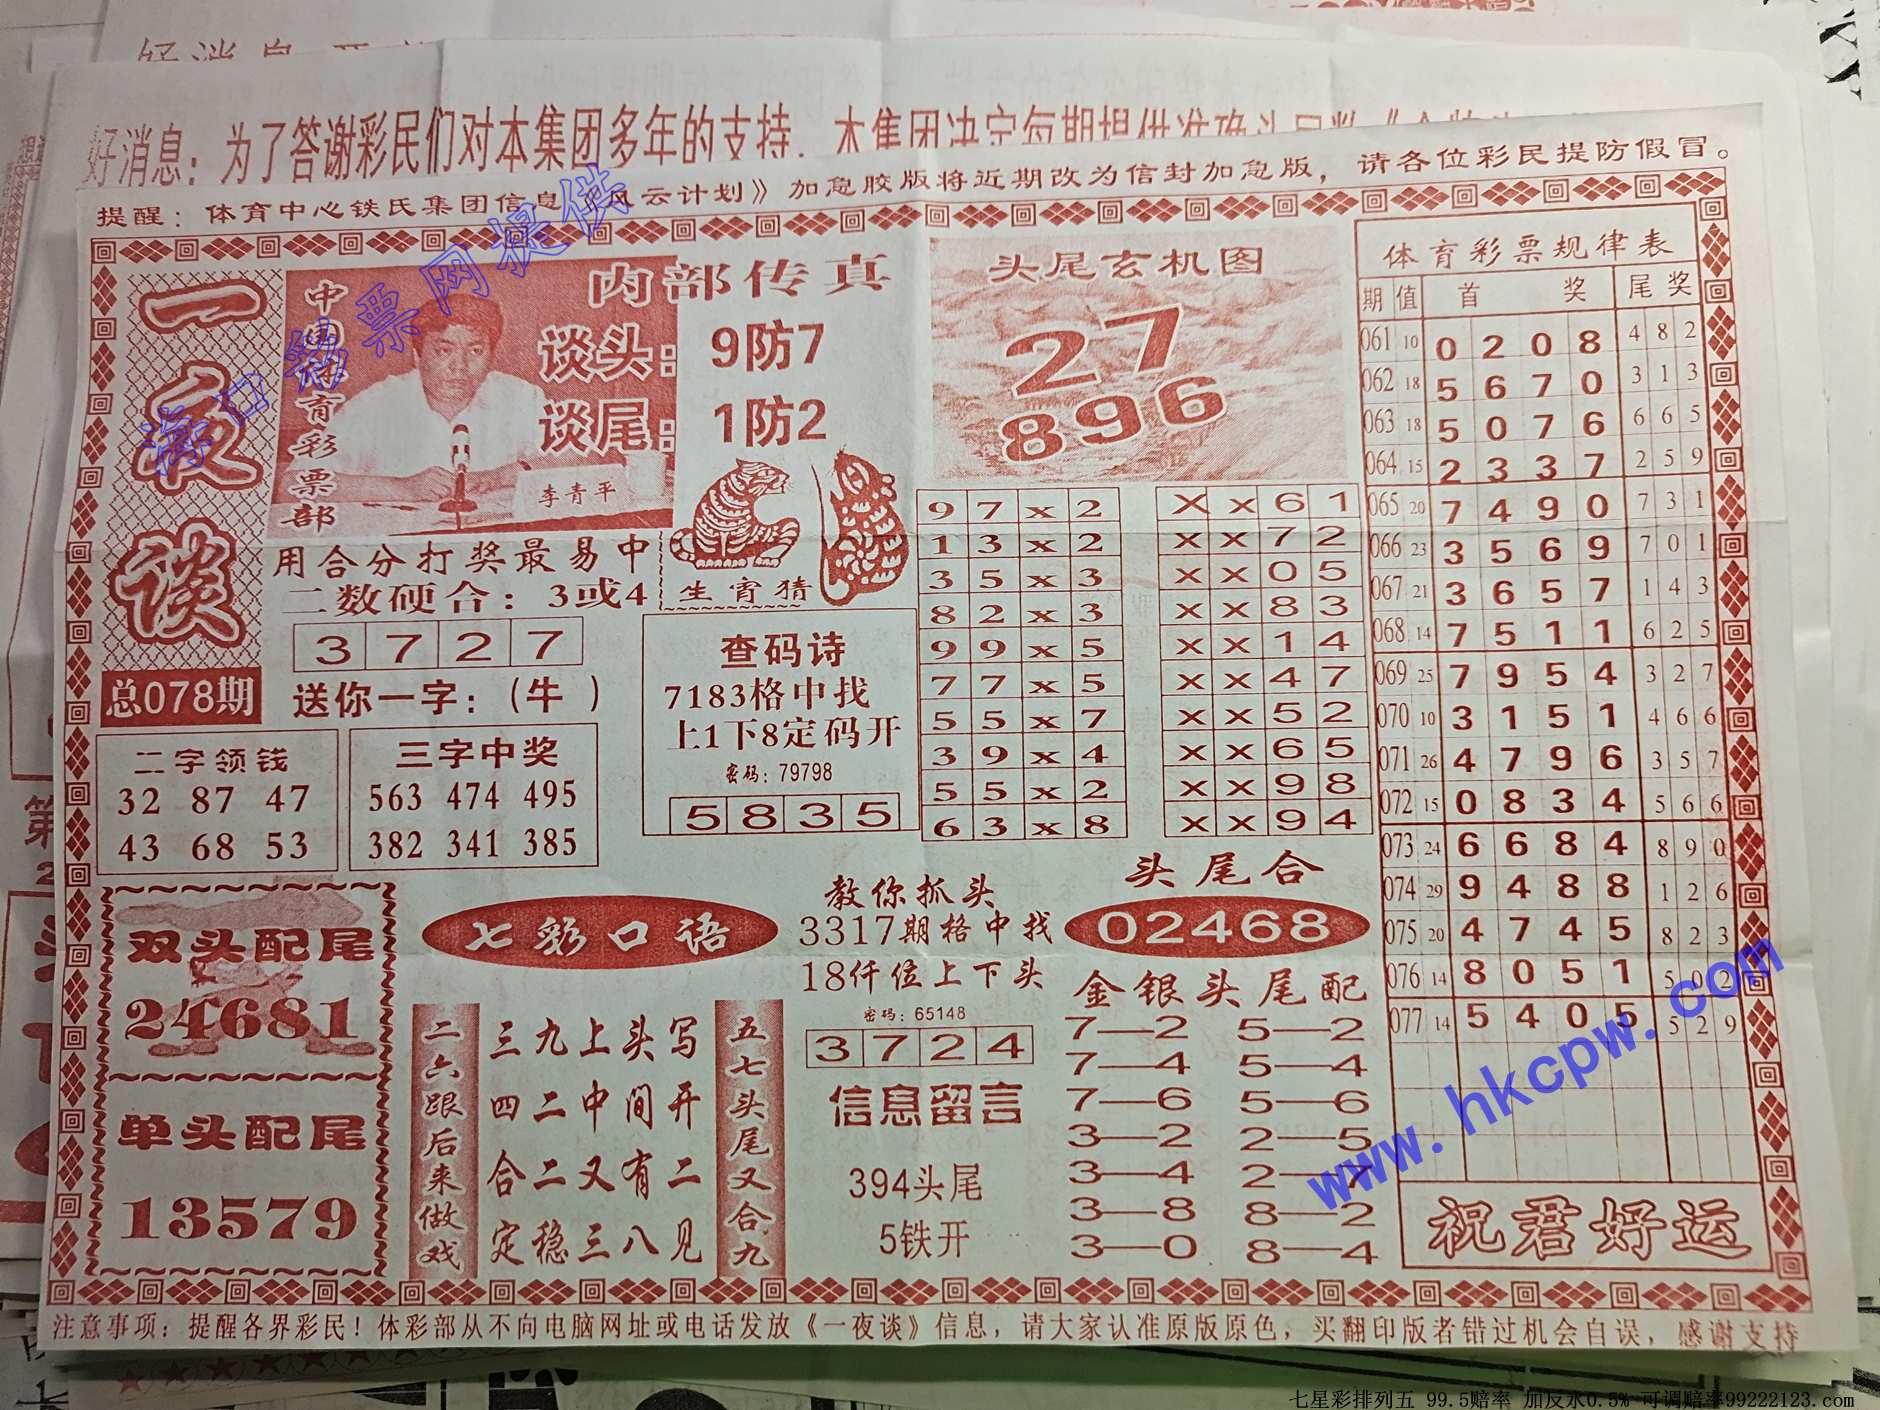 好消息：为了答谢彩民们对本集团多年的支持，本集团决定每期提供准确头尾料
提醒：体育中心铁氏集团信息《风云计划》加急胶版将近期改为信封加急版，请各位彩民提防假冒。
海口彩票网提供
一夜谈
总078期
中国体育彩票部
李青平
内部传真
谈头：9防7
谈尾：1防2
生宵猜
用合分打奖最易中
二数硬合：3或4
3 7 2 7
送你一字：(牛 )
二字领钱
32 87 47
43 68 53
三字中奖
563 474 495
382 341 385
查码诗
7183格中找
上1下8定码开
密码：79798
5 8 3 5
头尾玄机图
27
896
9 7 x 2
1 3 x 2
3 5 x 3
8 2 x 3
9 9 x 5
7 7 x 5
5 5 x 7
3 9 x 4
5 5 x 2
6 3 x 8
X X 6 1
X X 7 2
X X 0 5
X X 8 3
X X 1 4
X X 4 7
X X 5 2
X X 6 5
X X 9 8
X X 9 4
体育彩票规律表
期 值 首 奖 尾 奖
061 10 0 2 0 8 4 8 2
062 18 5 6 7 0 3 1 3
063 18 5 0 7 6 6 6 5
064 15 2 3 3 7 2 5 9
065 20 7 4 9 0 7 3 1
066 23 3 5 6 9 7 0 1
067 21 3 6 5 7 1 4 3
068 14 7 5 1 1 6 2 5
069 25 7 9 5 4 3 2 7
070 10 3 1 5 1 4 6 6
071 26 4 7 9 6 3 5 7
072 15 0 8 3 4 5 6 6
073 24 6 6 8 4 8 9 0
074 29 9 4 8 8 1 2 6
075 20 4 7 4 5 8 2 3
076 14 8 0 5 1 5 0 2
077 14 5 4 0 5 5 2 9
祝君好运
双头配尾
24681
单头配尾
13579
七彩口语
二六跟后来做戏
三九上头写
四二中间开
合二又有二
定稳三八见
五七头尾又合九
教你抓头
3317期格中找
18仟位上下头
密码：65148
3 7 2 4
信息留言
394头尾
5铁开
头尾合
02468
金银头尾配
7—2 5—2
7—4 5—4
7—6 5—6
3—2 2—5
3—4 2—7
3—8 8—2
3—0 8—4
www.hkcpw.com
注意事项：提醒各界彩民！体彩部从不向电脑网址或电话发放《一夜谈》信息，请大家认准原版原色，买翻印版者错过机会自误，感谢支持
七星彩排列五 99.5赔率 加反水0.5% 可调赔率99222123.com